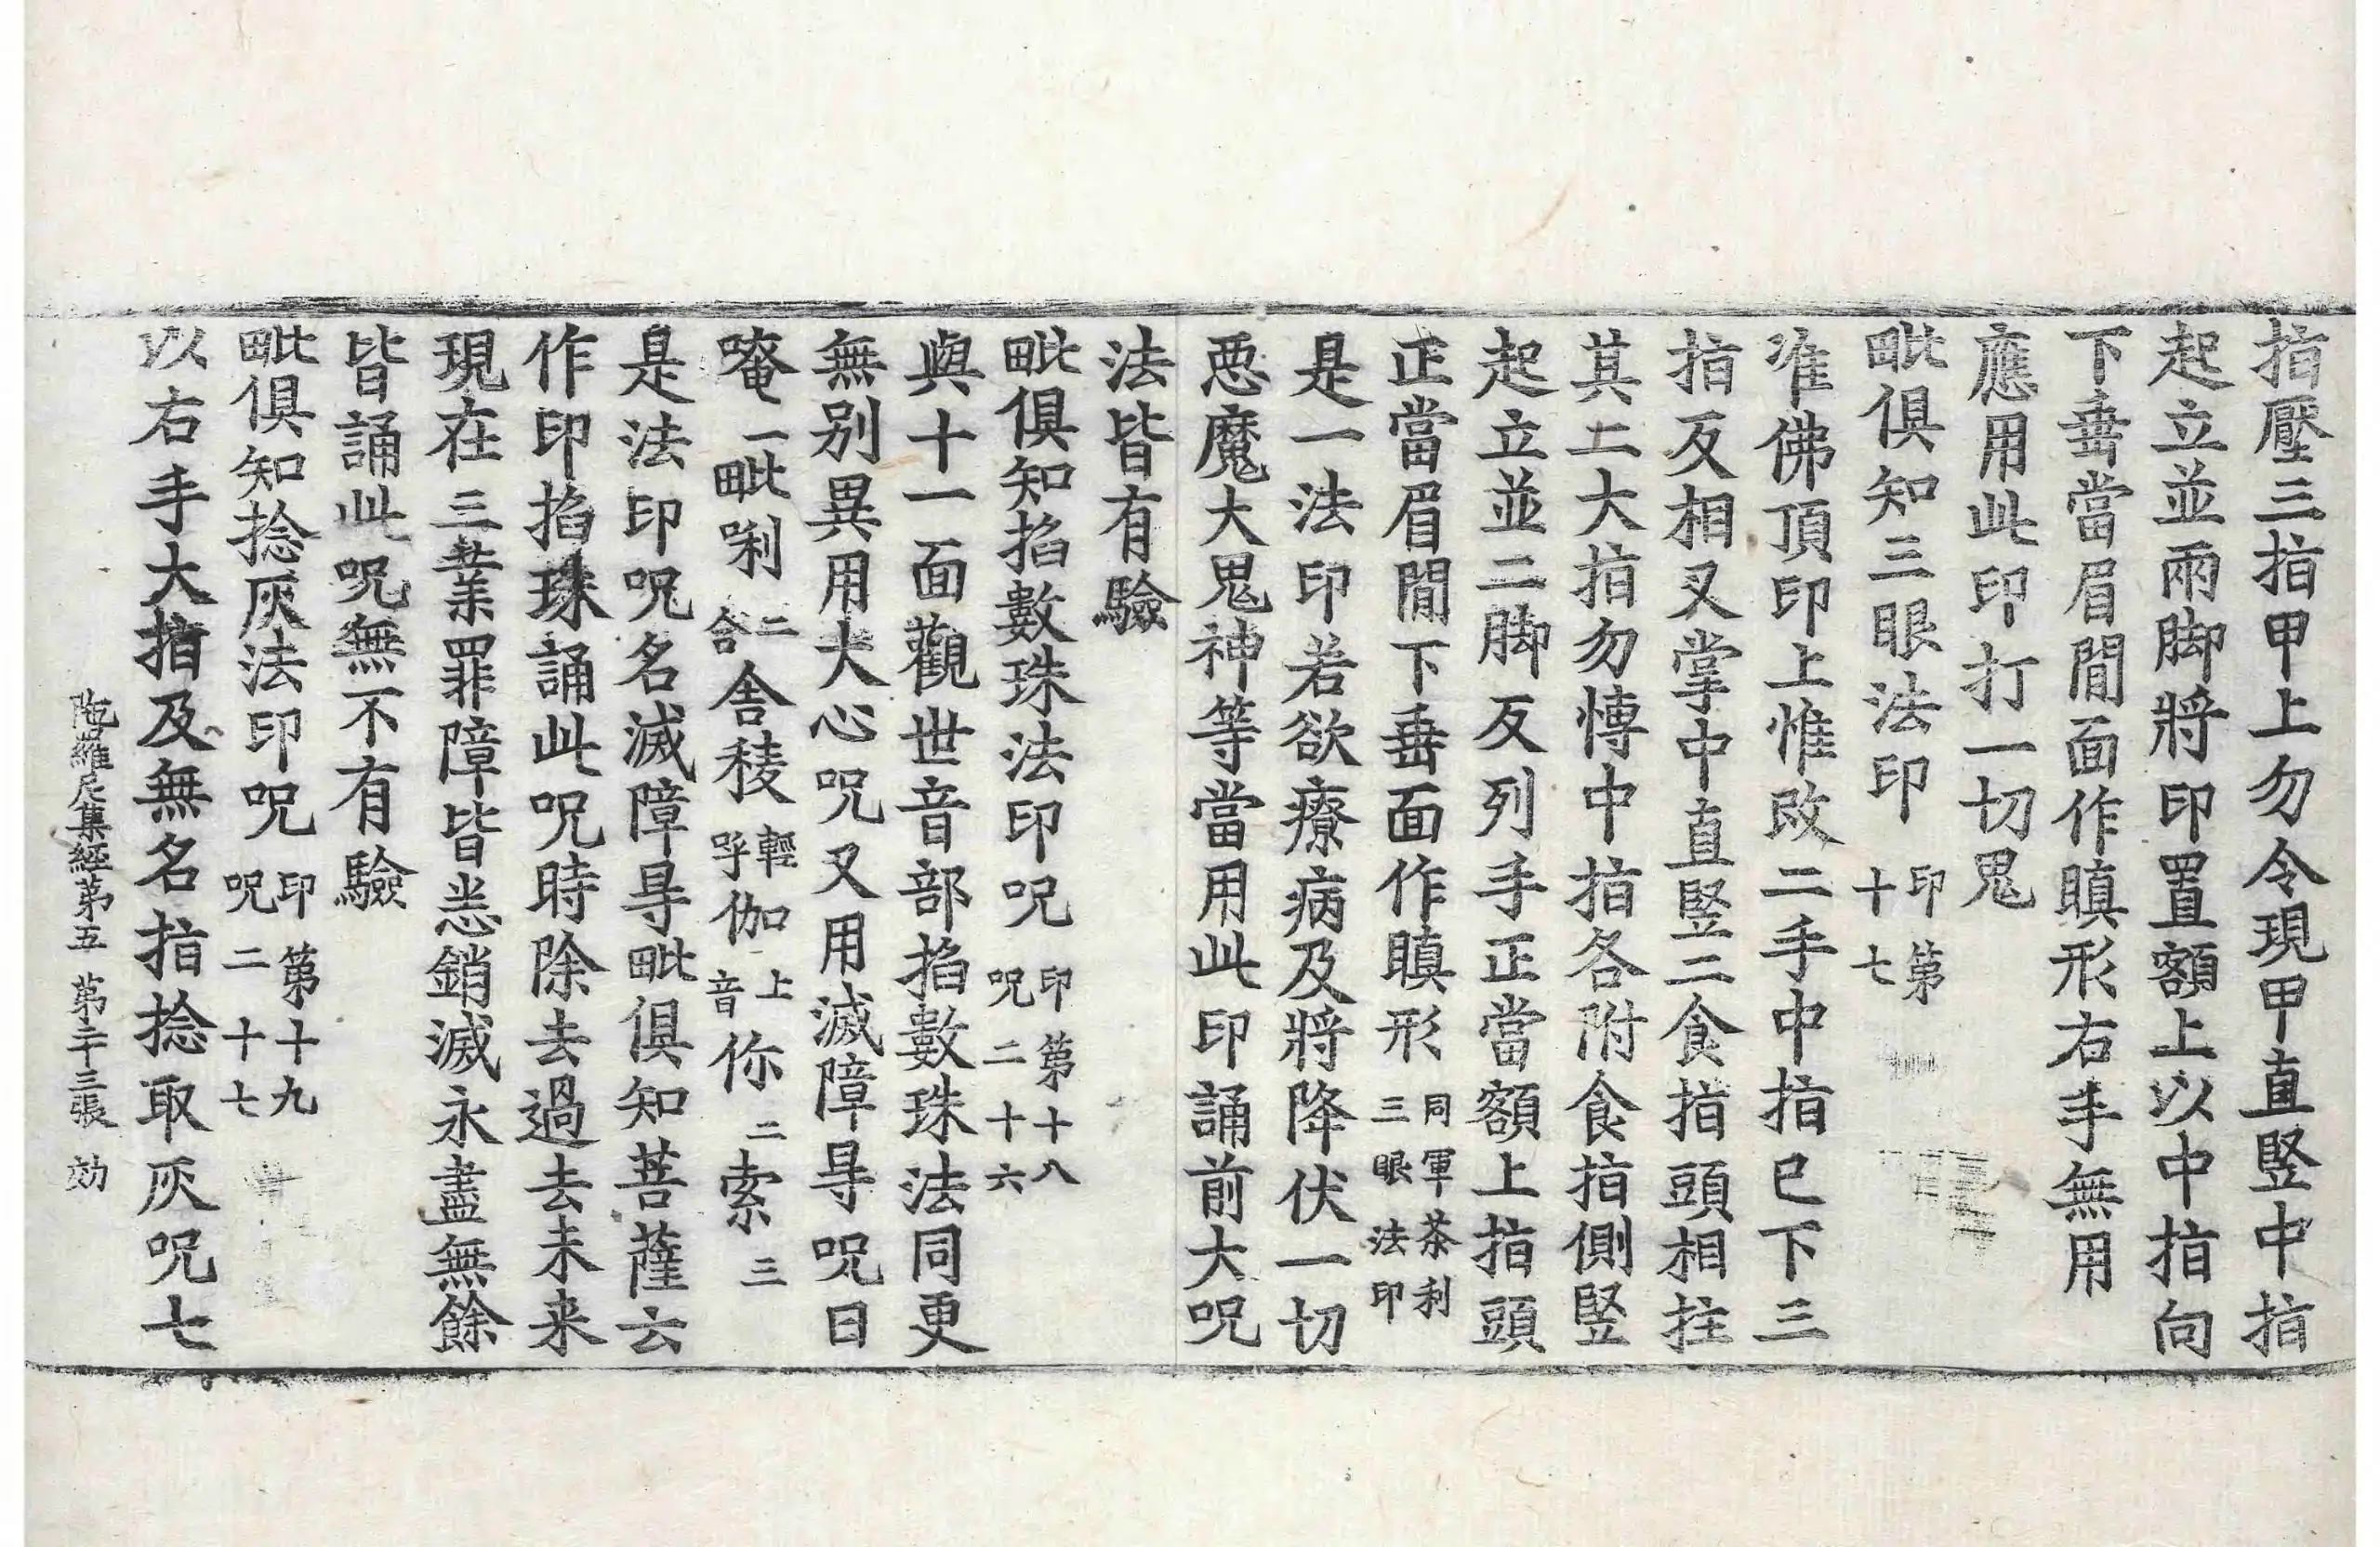 指壓三指甲上勿令現甲直竪中指
起立並兩脚將印置額上以中指向
下垂當眉間面作瞋形右手無用
應用此印打一切鬼
毗俱知三眼法印印第十七
准佛頂印上惟改二手中指已下三
指反相叉掌中直竪二食指頭相拄
其二大指勿愽中指各附食指側竪
起立並二脚反列手正當額上指頭
正當眉間下垂面作瞋形同軍荼利三眼法印
是一法印若欲療病及將降伏一切
惡魔大鬼神等當用此印誦前大呪
法皆有驗
毗俱知掐數珠法印呪印第十八呪二十六
與十一面觀世音部掐數珠法同更
無別異用大心呪又用滅障㝵呪曰
唵一毗唎二合舍稜輕呼伽上音你二索三
是法印呪名滅障㝵毗俱知菩薩云
作印掐珠誦此呪時除去過去未来
現在三業罪障皆悉銷滅永盡無餘
皆誦此呪無不有驗
毗俱知捻灰法印呪印第十九呪二十七
以右手大指及無名指捻取灰呪七
陁羅尼集經第五 第二十三張 効